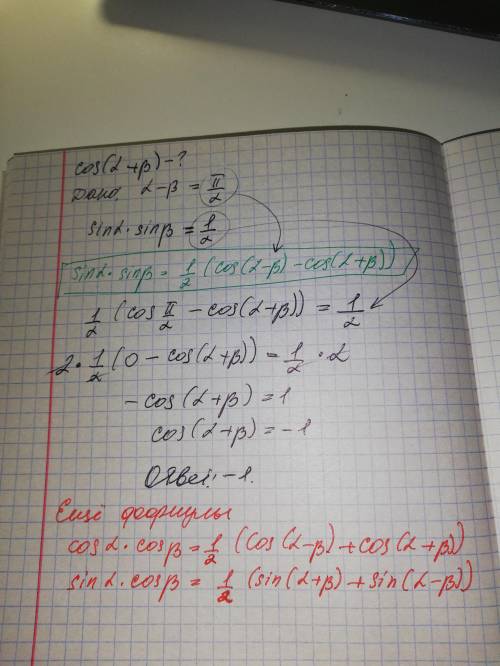 cos(α+β)-?
Дано: α-β = π/2
sinα·sinβ = 1/2
sinα·sinβ = 1/2 (cos(α-β) - cos(α+β))
1/2 (cos π/2 - cos(α+β)) = 1/2
2·1/2 (0 - cos(α+β)) = 1/2 ·2
-cos(α+β) = 1
cos(α+β) = -1
Ответ: -1.
Ещё формулы
cosα·cosβ = 1/2 (cos(α-β) + cos(α+β))
sinα·cosβ = 1/2 (sin(α+β) + sin(α-β))